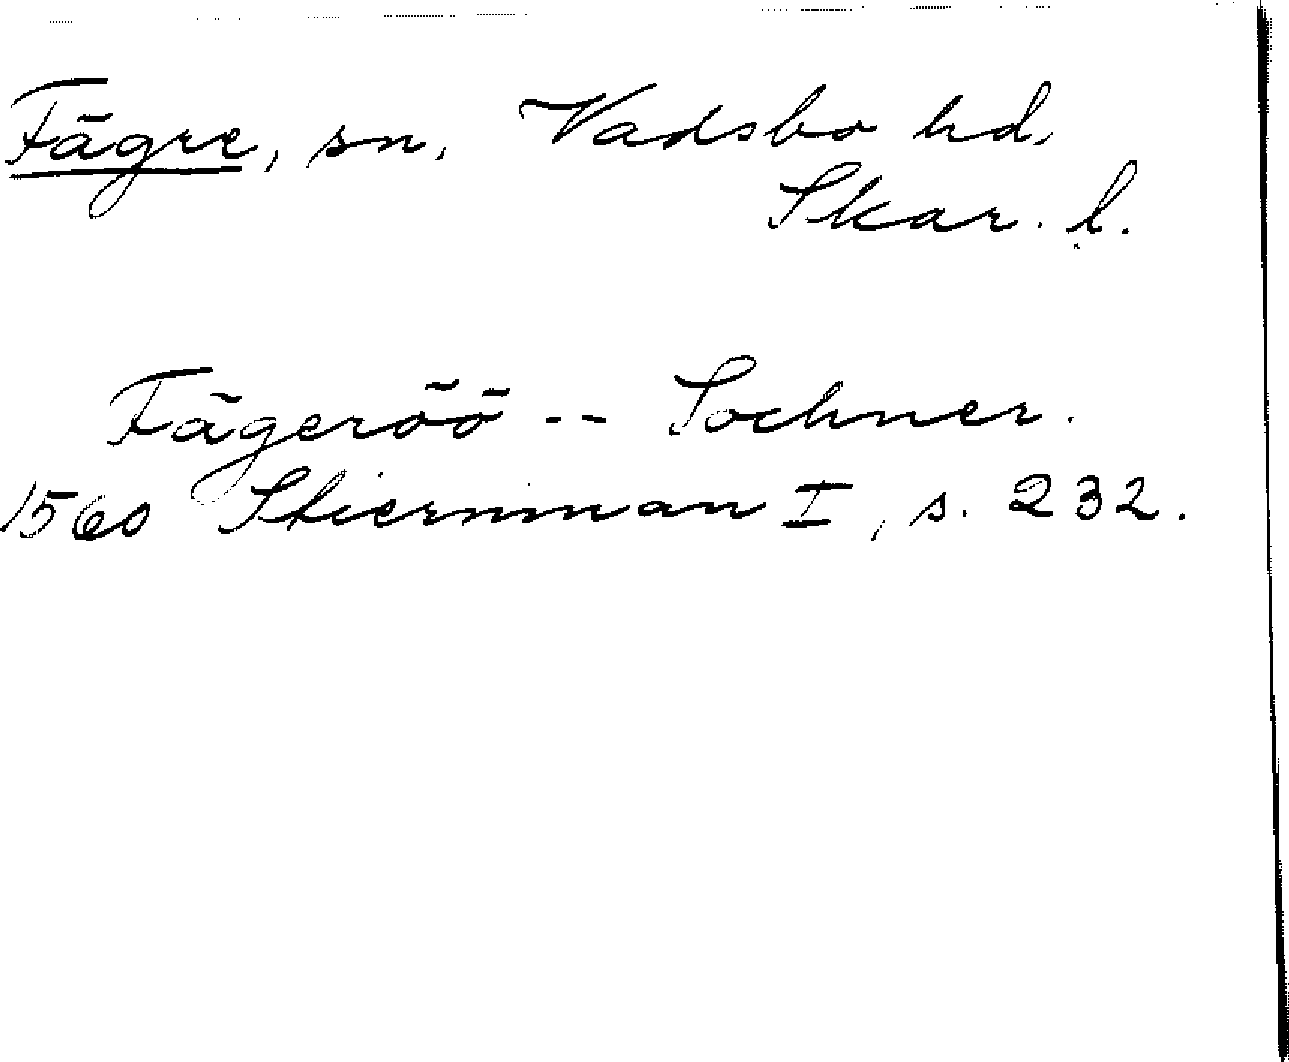 Fägre, sn, Vadsbo hd,
Skar. l.
Fägeröö -- Sochner.
1560 Stiernman I, s. 232.